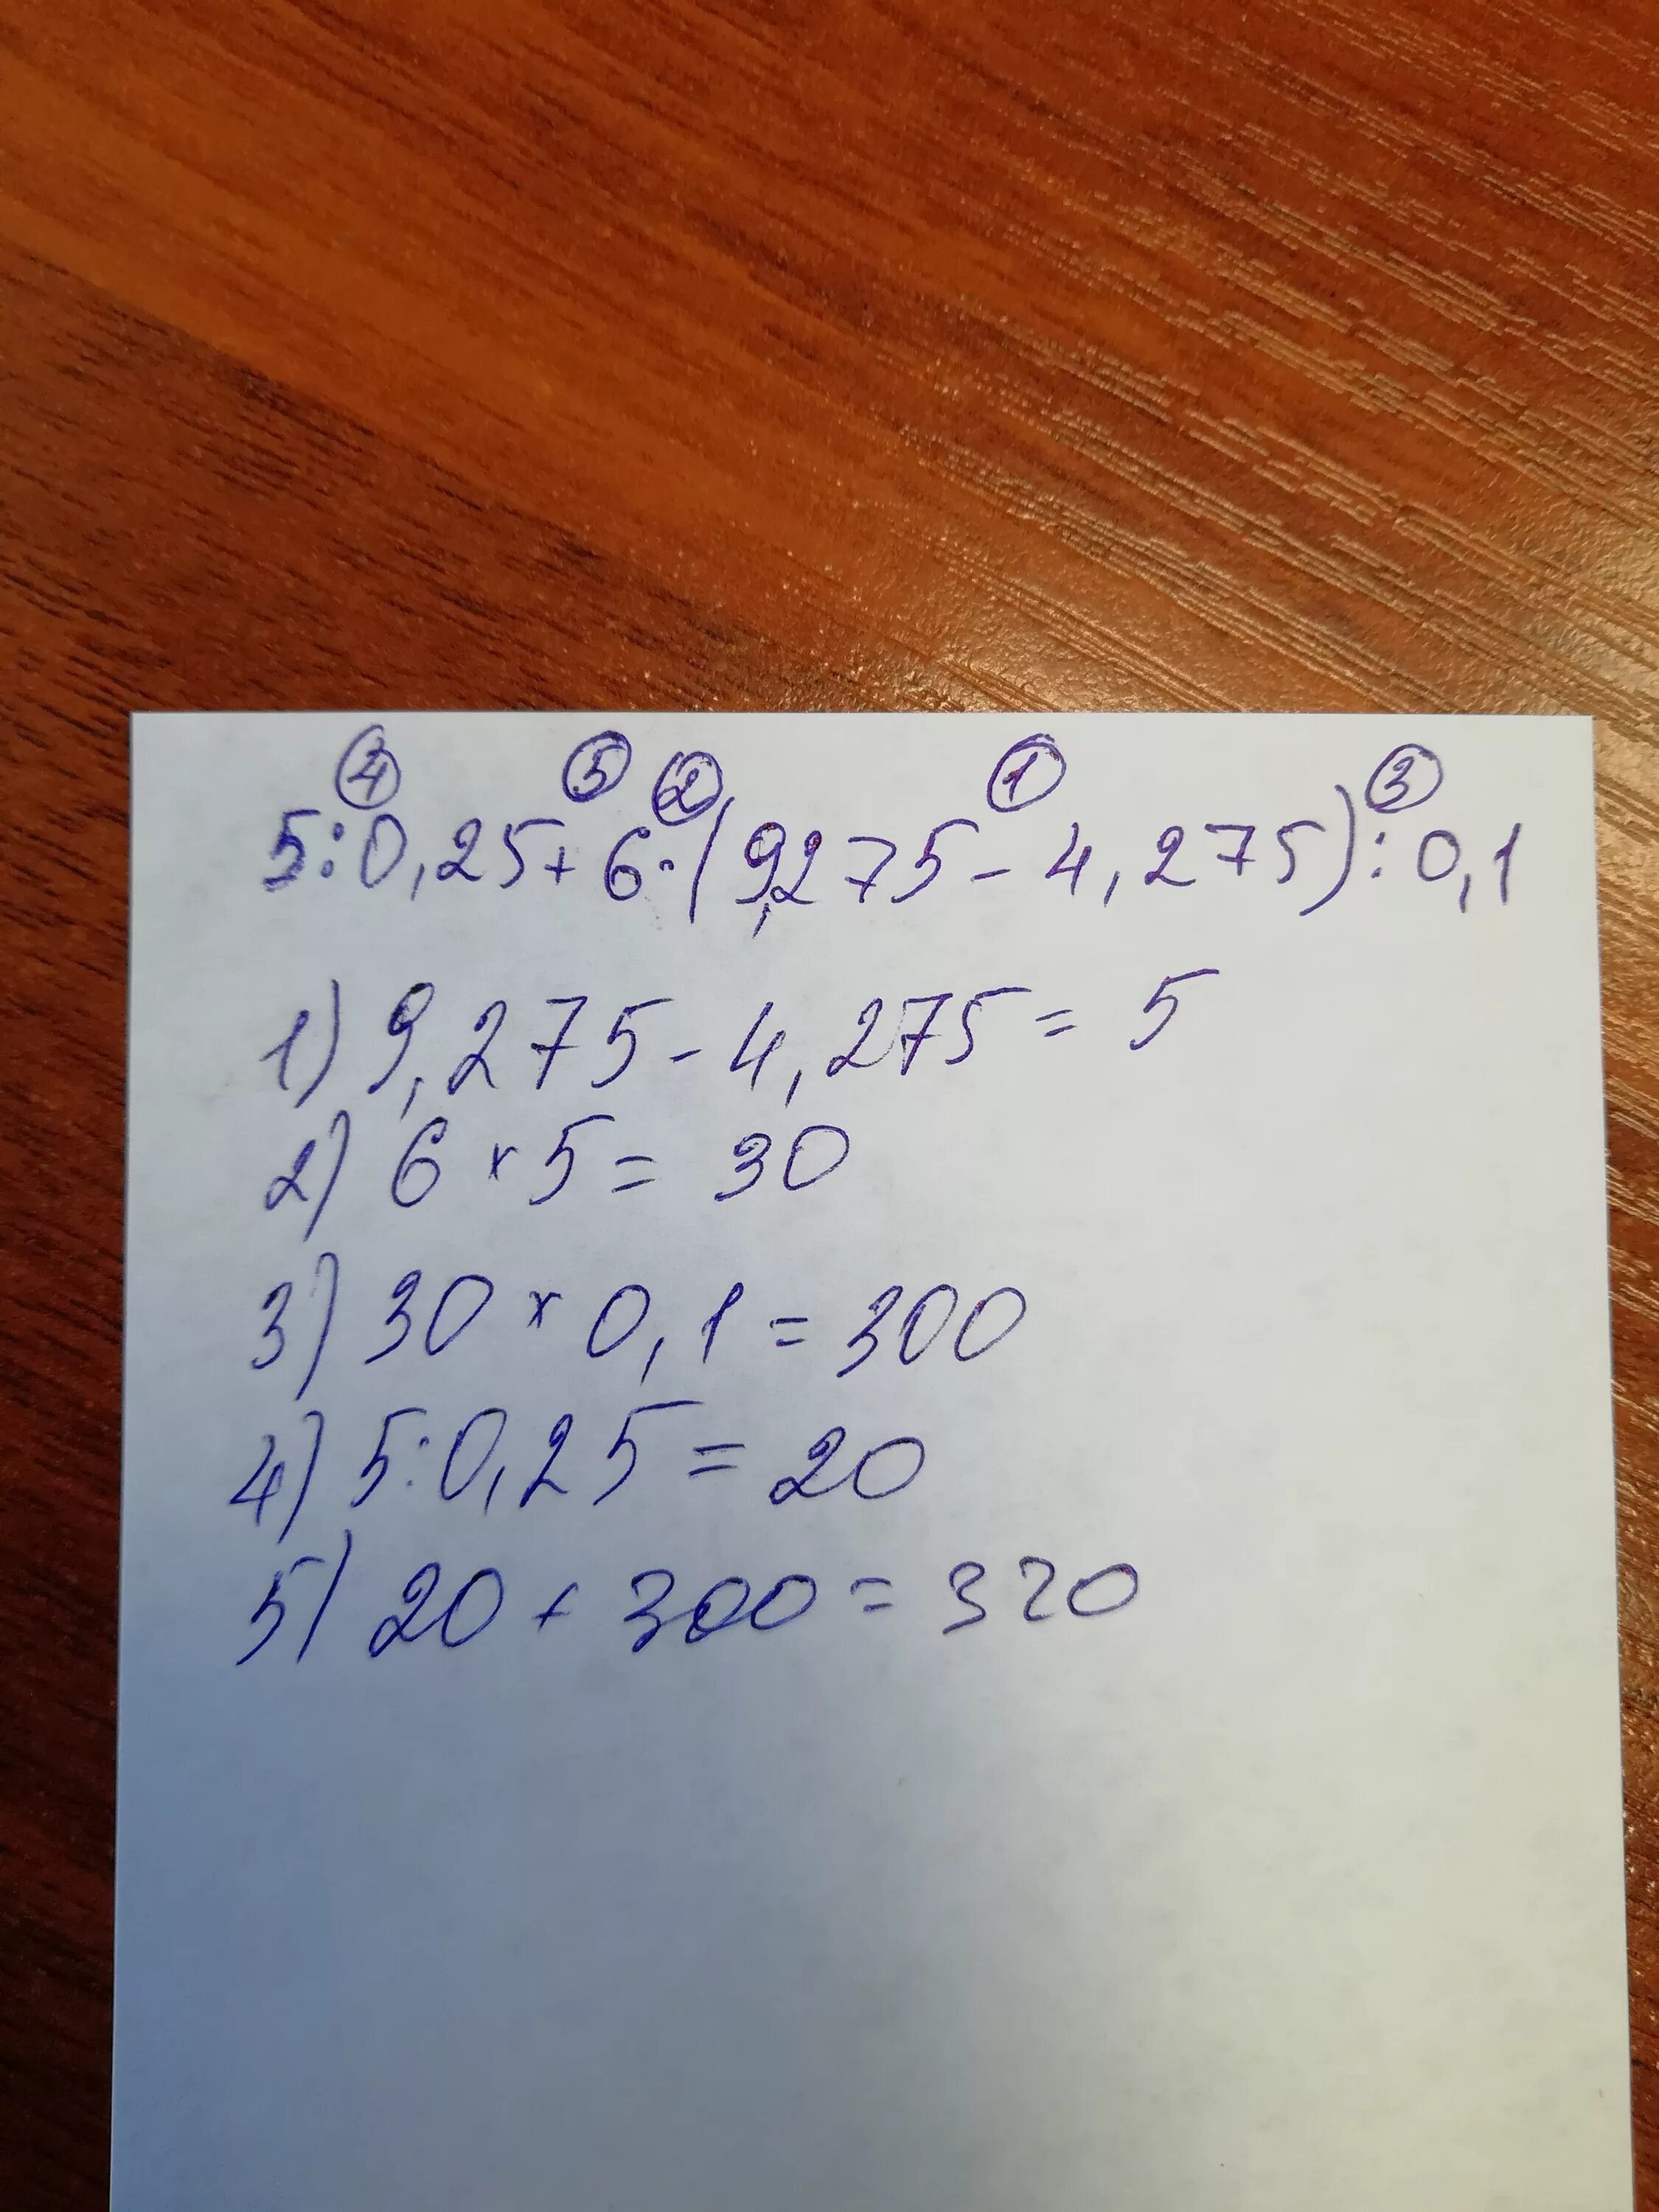 ④ ⑤ ② ① ③
5:0,25+6·(9,275-4,275):0,1
1) 9,275-4,275=5
2) 6×5=30
3) 30×0,1=300
4) 5:0,25=20
5) 20+300=320